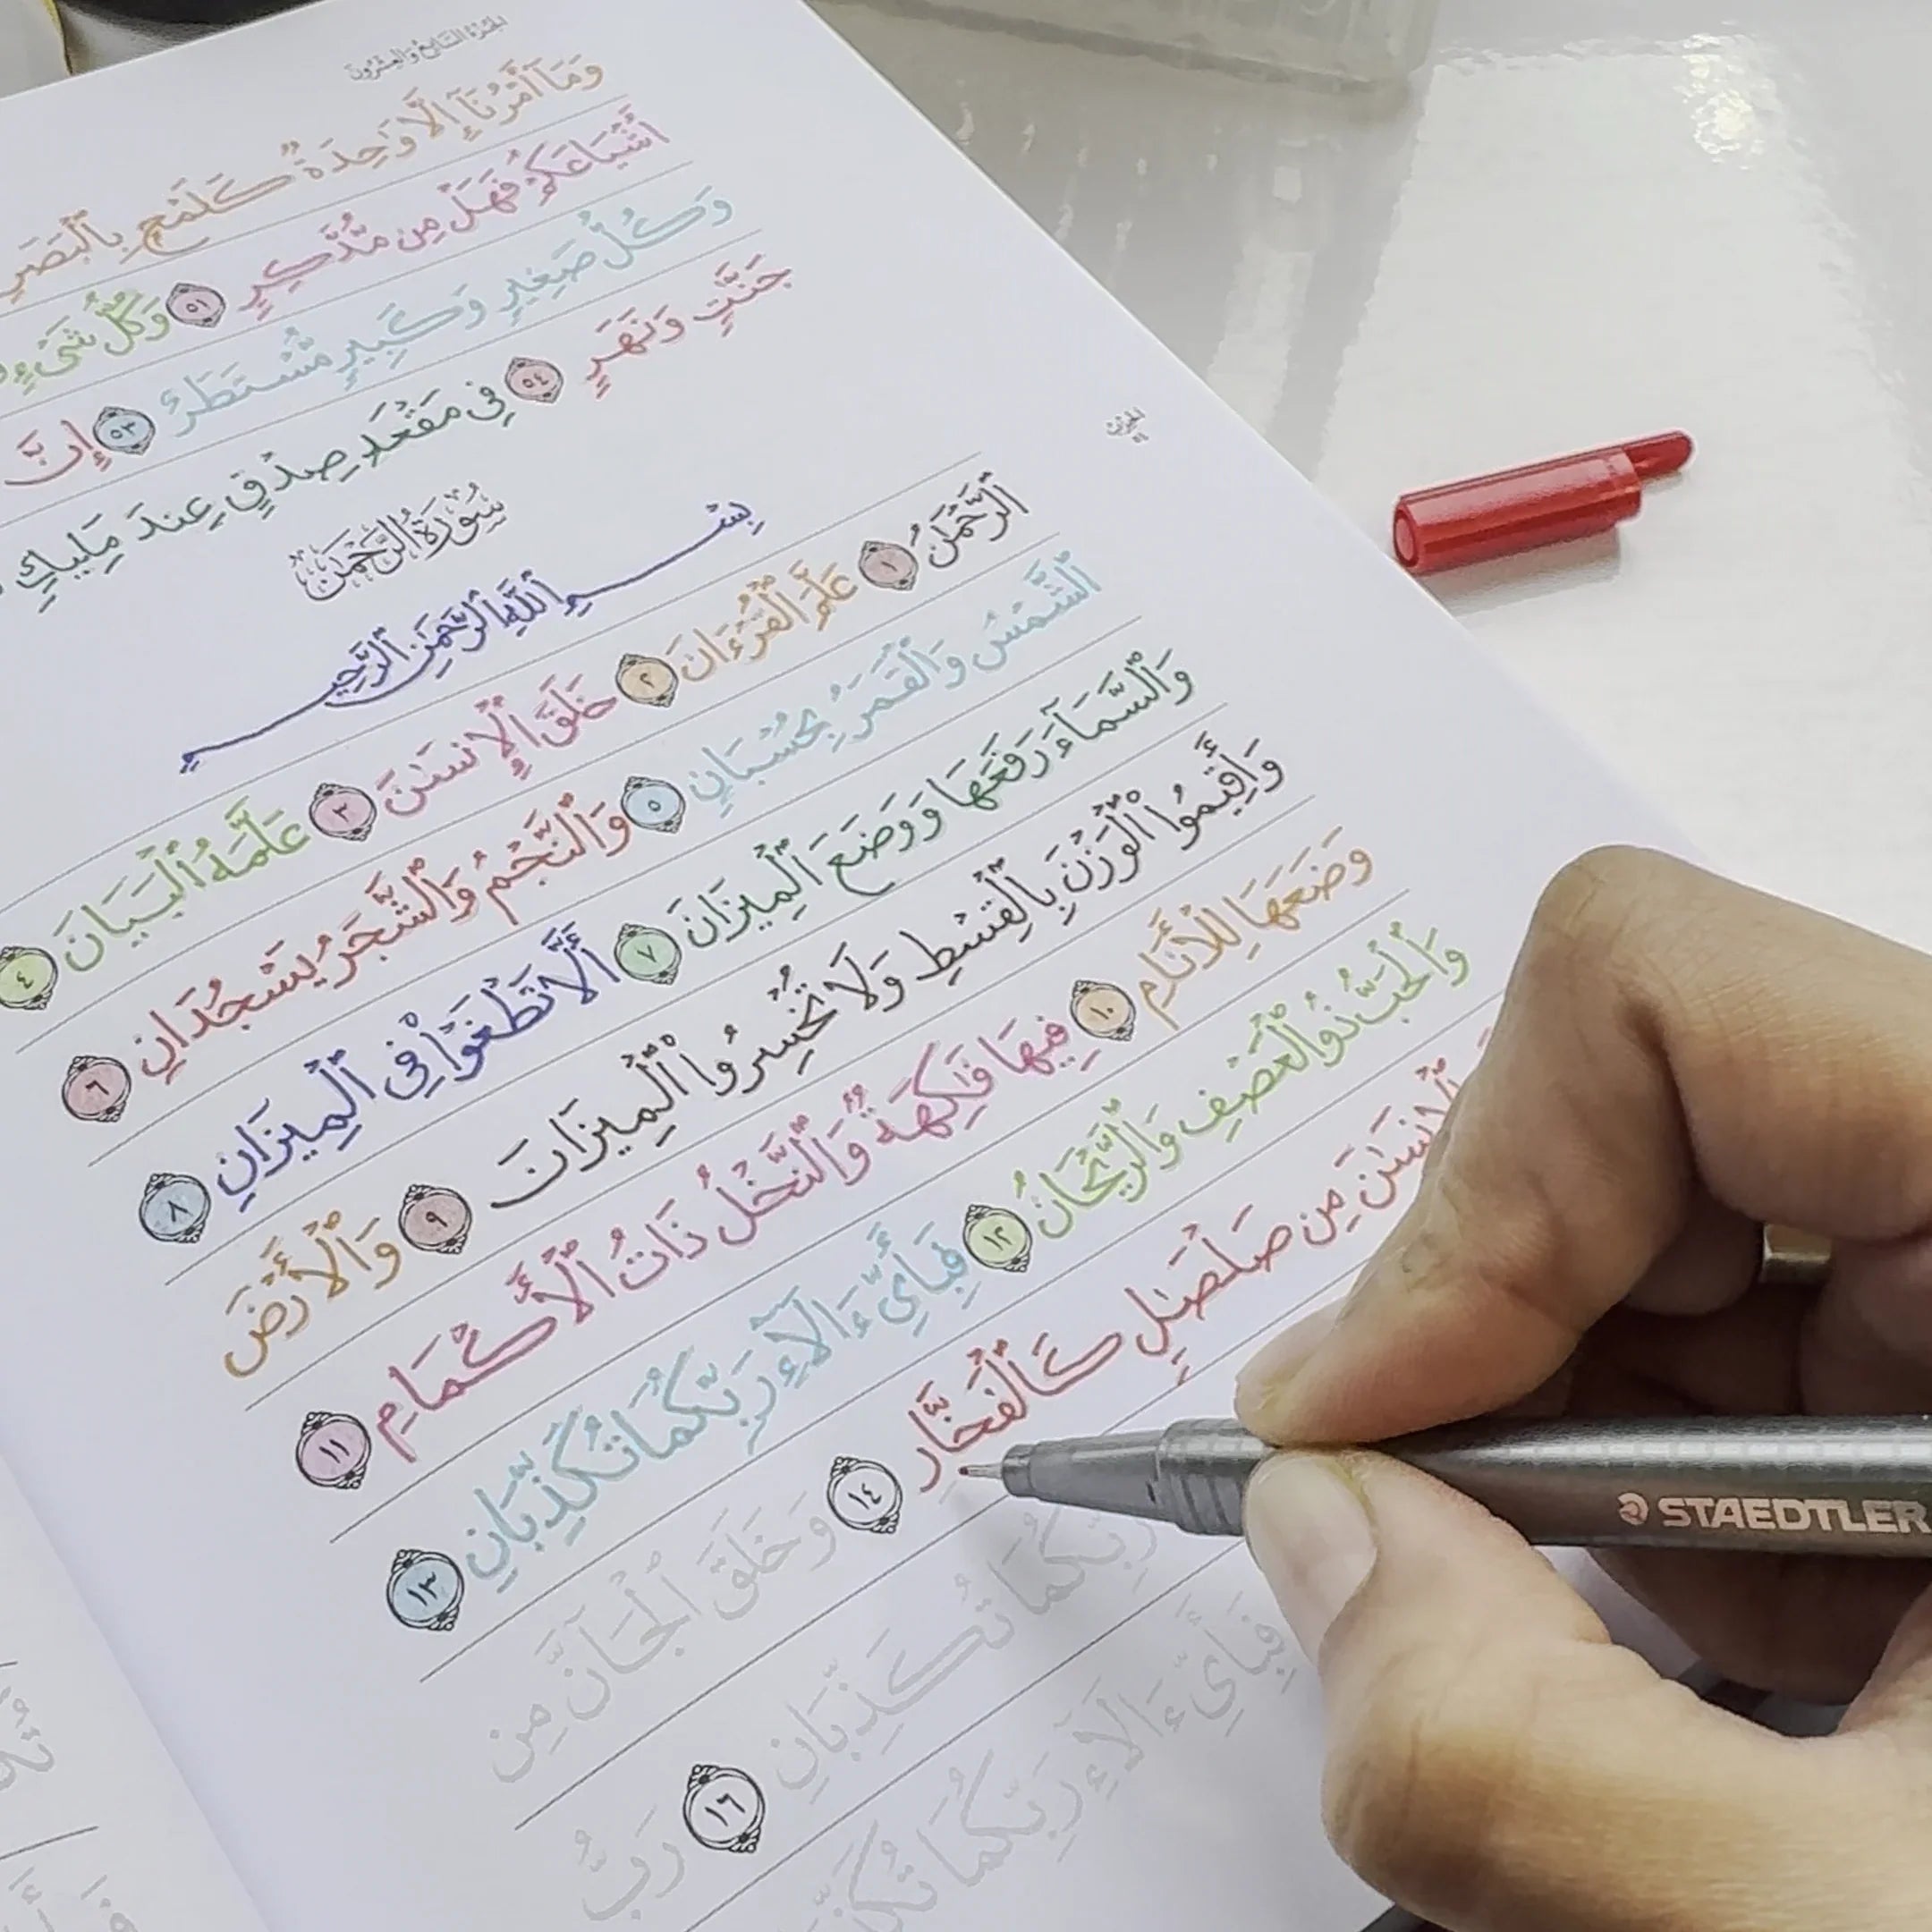 الجزء السابع والعشرون
وَمَآ أَمْرُنَآ إِلَّا وَٰحِدَةٌ كَلَمْحٍۭ بِٱلْبَصَرِ
أَشْيَاعَكُمْ فَهَلْ مِن مُّدَّكِرٍ ٥١ وَكُلُّ شَىْءٍ
وَكُلُّ صَغِيرٍ وَكَبِيرٍ مُّسْتَطَرٌ ٥٣ إِنَّ
جَنَّٰتٍ وَنَهَرٍ ٥٤ فِى مَقْعَدِ صِدْقٍ عِندَ مَلِيكٍ
سُورَةُ الرَّحْمَٰن
بِسْمِ ٱللَّهِ ٱلرَّحْمَٰنِ ٱلرَّحِيمِ
ٱلرَّحْمَٰنُ ١ عَلَّمَ ٱلْقُرْءَانَ ٢ خَلَقَ ٱلْإِنسَٰنَ ٣ عَلَّمَهُ ٱلْبَيَانَ ٤
ٱلشَّمْسُ وَٱلْقَمَرُ بِحُسْبَانٍ ٥ وَٱلنَّجْمُ وَٱلشَّجَرُ يَسْجُدَانِ ٦
وَٱلسَّمَآءَ رَفَعَهَا وَوَضَعَ ٱلْمِيزَانَ ٧ أَلَّا تَطْغَوْا۟ فِى ٱلْمِيزَانِ ٨
وَأَقِيمُوا۟ ٱلْوَزْنَ بِٱلْقِسْطِ وَلَا تُخْسِرُوا۟ ٱلْمِيزَانَ ٩ وَٱلْأَرْضَ
وَضَعَهَا لِلْأَنَامِ ١٠ فِيهَا فَٰكِهَةٌ وَٱلنَّخْلُ ذَاتُ ٱلْأَكْمَامِ ١١
وَٱلْحَبُّ ذُو ٱلْعَصْفِ وَٱلرَّيْحَانُ ١٢ فَبِأَىِّ ءَالَآءِ رَبِّكُمَا تُكَذِّبَانِ ١٣
ٱلْإِنسَٰنَ مِن صَلْصَٰلٍ كَٱلْفَخَّارِ ١٤ وَخَلَقَ ٱلْجَآنَّ مِن
رَبِّكُمَا تُكَذِّبَانِ ١٦ رَبُّ
فَبِأَىِّ ءَالَآءِ رَبِّكُمَا
STAEDTLER